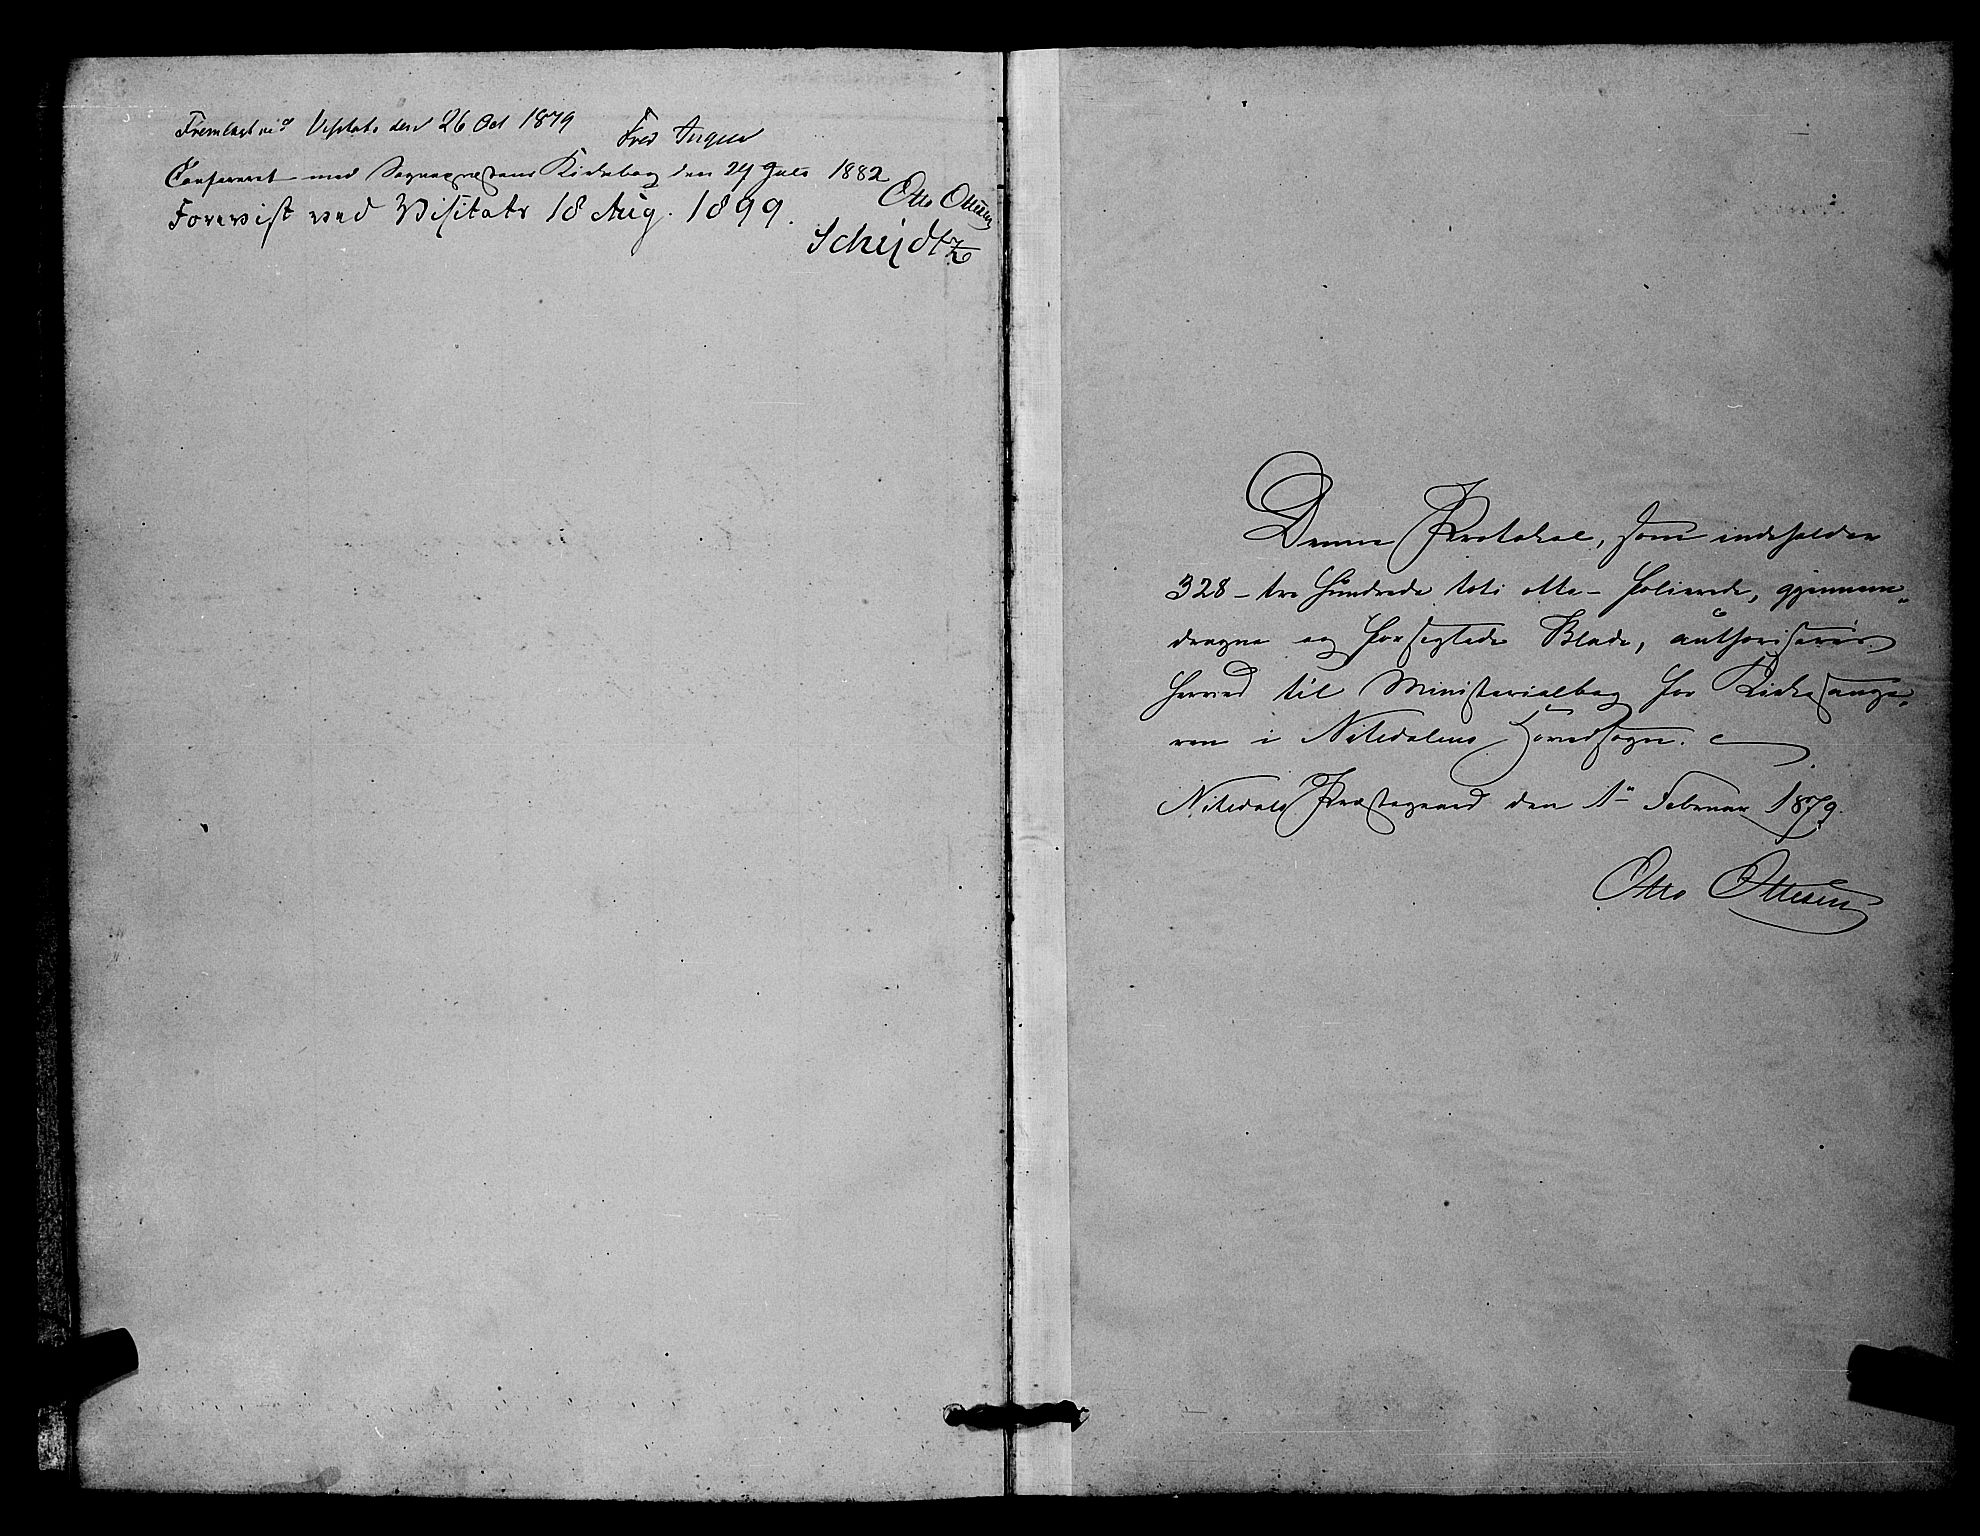 Fremlagt ved Visitats den 26 Oct 1879
Fred
Confereret med Sognepræstens Kirkebog den 24 Juli 1882
Otto Ottesen
Forevist ved Visitats 18 Aug. 1899.
Denne Protokol, som indeholder
328 - tre hundrede toti otte - folierede, gjennem„
dragne og forseglede Blade, authoriseres
herved til Ministerialbog for Kirkesange„
ren i Nitedalens Hovedsogn.
Nitedals Præstegaard den 1ste Februar 1879.
Otto Ottesen